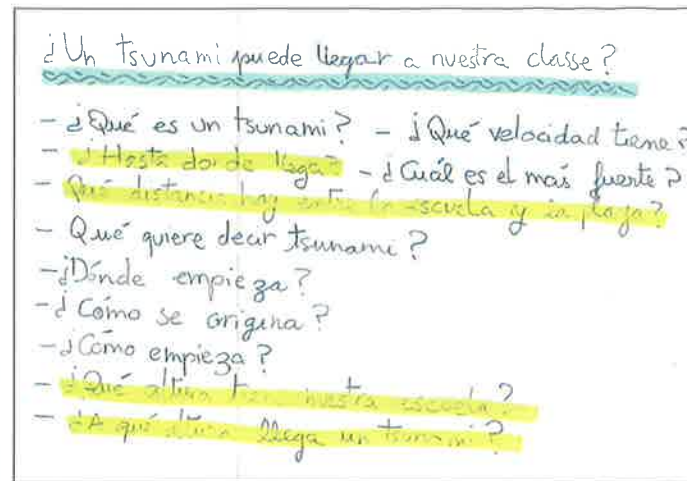 ¿Un tsunami puede llegar a nuestra classe?
- ¿Qué es un tsunami? - ¿Qué velocidad tiene?
- ¿Hasta dónde llega? - ¿Cuál es el más fuerte?
- Qué distancia hay entre la escuela y la playa?
- Qué quiere decir tsunami?
- ¿Dónde empieza?
- ¿Cómo se origina?
- ¿Cómo empieza?
- ¿Qué altura tiene nuestra escuela?
- ¿A qué altura llega un tsunami?